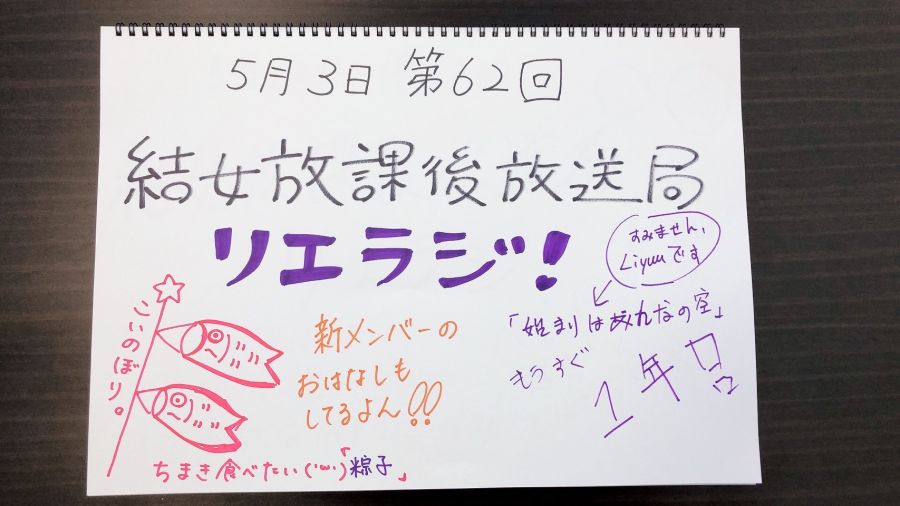 5月3日 第62回
結女放課後放送局
リエラジ!
すみません、
Liyuuです
「始まりはみんなの空」
もうすぐ
1年!!
新メンバーの
おはなしも
してるよん!!
こいのぼり。
ちまき食べたい('ω')「粽子」